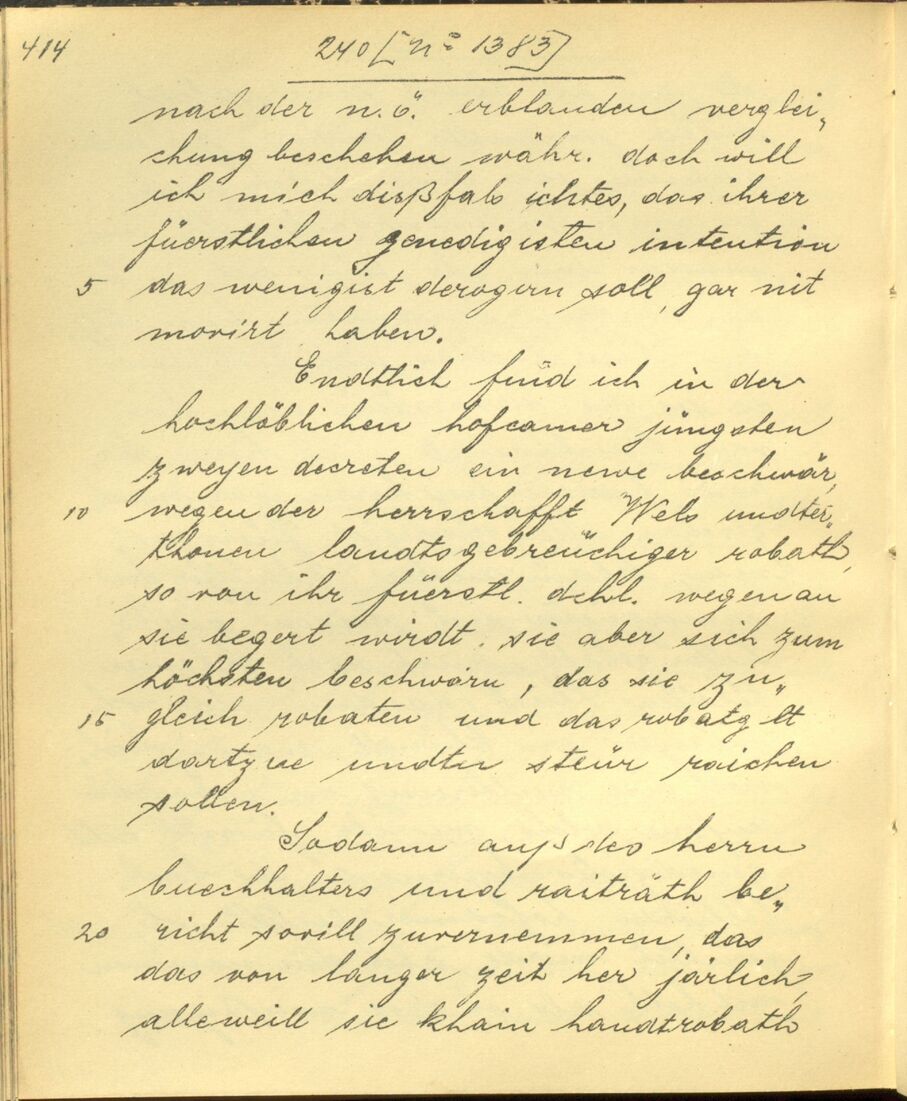 414
240 [No 1383]
nach der n. ö. erblanden verglei„
chung beschehen währ. doch will
ich mich dißfals ichtes, das ihrer
füerstlichen genedigisten intention
5 das wenigist derogirn soll, gar nit
movirt haben.
Endtlich find ich in der
hochlöblichen hofcamer jüngsten
zweyen decreten ein newe beschwär,
10 wegen der herrschafft Wels undter„
thonen landtsgebreüchiger robath,
so von ihr füerstl. dchl. wegen an
sie begert wirdt. sie aber sich zum
höchsten beschwärn, das sie zu„
15 gleich robaten und das robatgelt
dartzue undtn steür raichen
sollen.
Sodann auß des herrn
buechhalters und raiträth be„
20 richt sovill zuvernemmen, das
das von langer zeit her järlich,
alleweill sie khain handtrobath